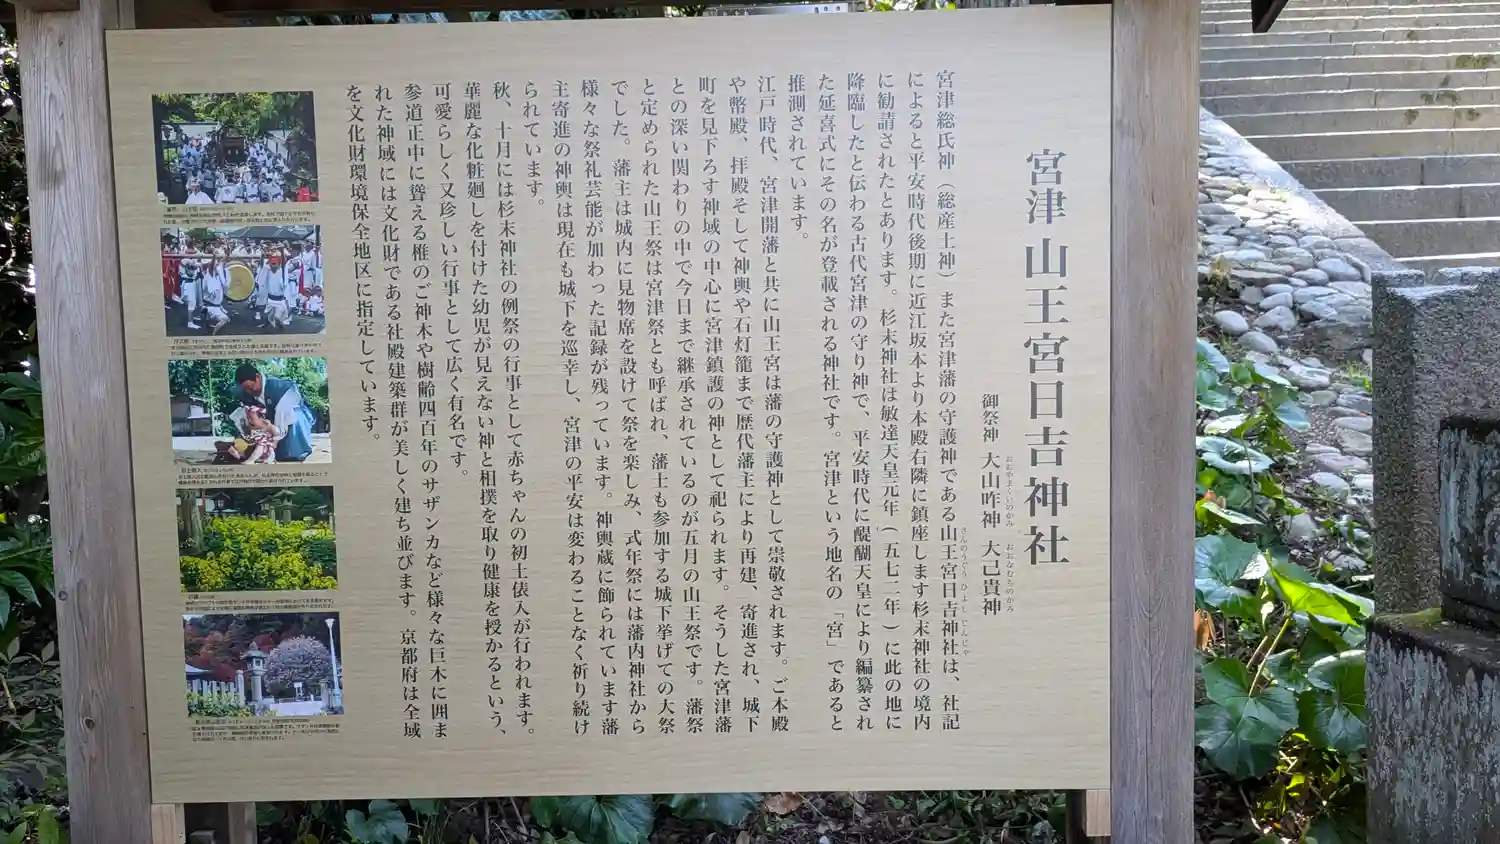 宮津 山王宮日吉神社
御祭神 大山咋神 大己貴神
おおやまくいのかみ おおなむちのかみ
宮津総氏神（総産土神）また宮津藩の守護神である山王宮日吉神社は、社記
さんのうぐう ひよし じんじゃ
によると平安時代後期に近江坂本より本殿右隣に鎮座します杉末神社の境内
に勧請されたとあります。杉末神社は敏達天皇元年（五七二年）に此の地に
降臨したと伝わる古代宮津の守り神で、平安時代に醍醐天皇により編纂され
た延喜式にその名が登載される神社です。宮津という地名の「宮」であると
推測されています。
江戸時代、宮津開藩と共に山王宮は藩の守護神として崇敬されます。ご本殿
や幣殿、拝殿そして神輿や石灯籠まで歴代藩主により再建、寄進され、城下
町を見下ろす神域の中心に宮津鎮護の神として祀られます。そうした宮津藩
との深い関わりの中で今日まで継承されているのが五月の山王祭です。藩祭
と定められた山王祭は宮津祭とも呼ばれ、藩士も参加する城下挙げての大祭
でした。藩主は城内に見物席を設けて祭を楽しみ、式年祭には藩内神社から
様々な祭礼芸能が加わった記録が残っています。神輿蔵に飾られています藩
主寄進の神輿は現在も城下を巡幸し、宮津の平安は変わることなく祈り続け
られています。
秋、十月には杉末神社の例祭の行事として赤ちゃんの初土俵入が行われます。
華麗な化粧廻しを付けた幼児が見えない神と相撲を取り健康を授かるという、
可愛らしく又珍しい行事として広く有名です。
参道正中に聳える椎のご神木や樹齢四百年のサザンカなど様々な巨木に囲ま
れた神域には文化財である社殿建築群が美しく建ち並びます。京都府は全域
を文化財環境保全地区に指定しています。